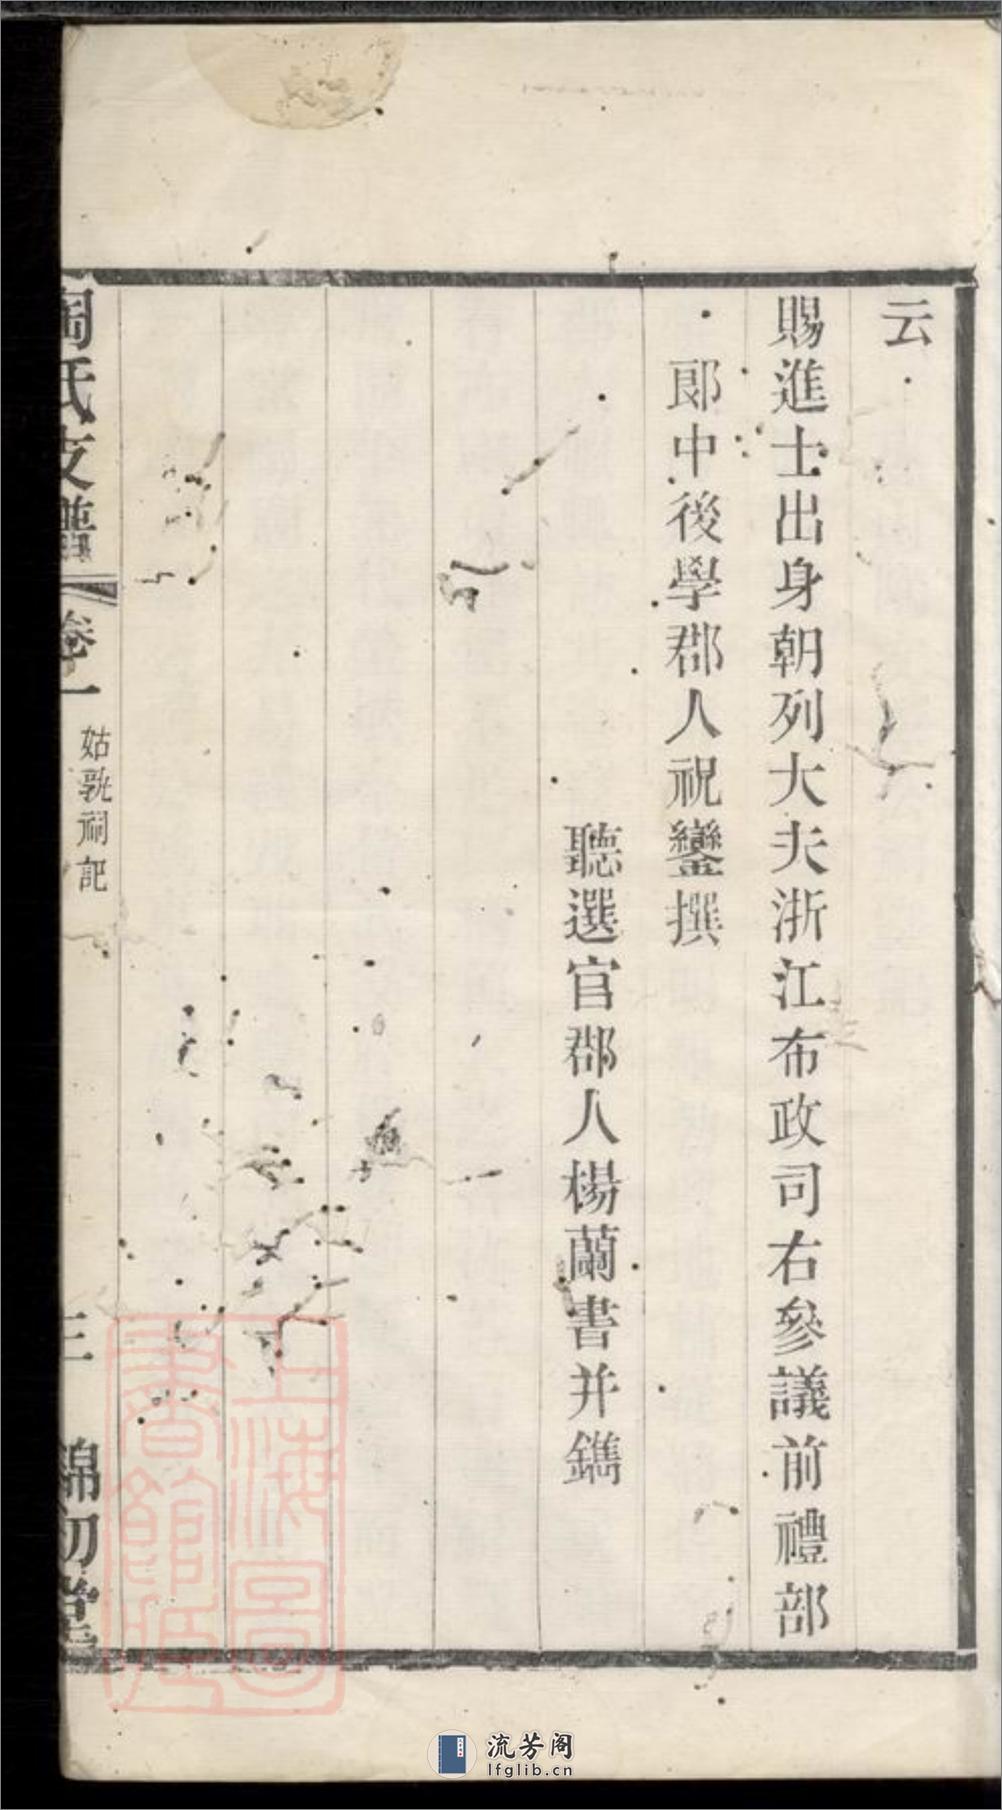 云
賜進士出身朝列大夫浙江布政司右參議前禮部
郎中後學郡人祝鑾撰
聽選官郡人楊蘭書并鐫
陶氏支譜
卷一
姑孰祠記
三
錦初堂
上海圖書館藏
流芳阁
lfglib.cn